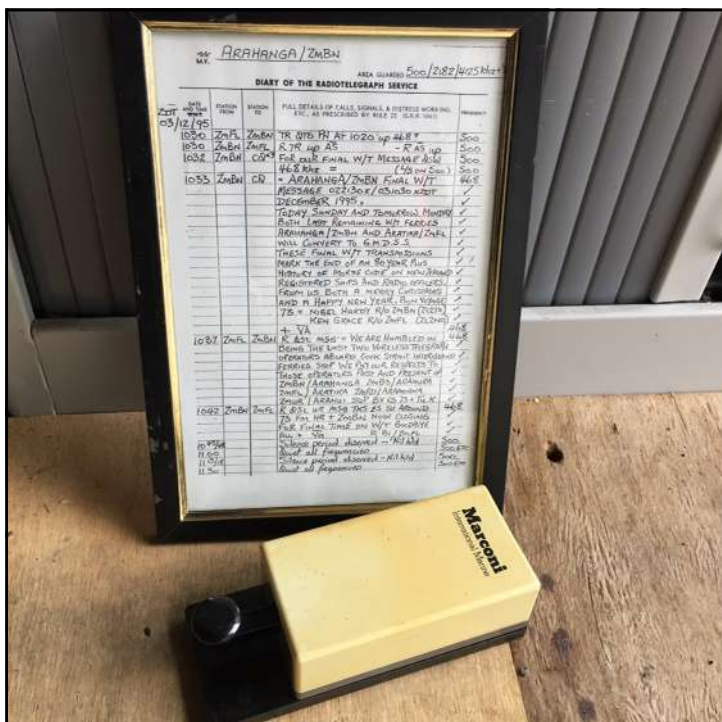 M.V. ARAHANGA/ZMBN
AREA GUARDED 500/2182/4125 khz
DIARY OF THE RADIOTELEGRAPH SERVICE
DATE AND TIME STATION FROM STATION TO FULL DETAILS OF CALLS, SIGNALS & DISTRESS WORKING, ETC., AS PRESCRIBED BY RULE FREQUENCY
03/12/95
1030 ZMFL ZMBN TR QTO PN AT 1020 up 468" 500
1030 ZMBN ZMFL R TR up AS - R AS up 500
1032 ZMBN CQ FOR OUR FINAL W/T MESSAGE QSW 500
468 khz = ON 500) 500
1033 ZMBN CQ = ARAHANGA/ZMBN FINAL W/T 468
MESSAGE 022130Z/031030 NZDT ✓
DECEMBER 1995. ✓
TODAY SUNDAY AND TOMORROW MONDAY ✓
BOTH LAST REMAINING W/T FERRIES ✓
ARAHANGA/ZMBN AND ARATIKA/ZMFL ✓
WILL CONVERT TO G.M.D.S.S. ✓
THESE FINAL W/T TRANSMISSIONS ✓
MARK THE END OF AN 80 YEAR PLUS ✓
HISTORY OF MORSE CODE ON NEW ZEALAND ✓
REGISTERED SHIPS AND RADIO OFFICERS. ✓
FROM US BOTH A MERRY CHRISTMAS ✓
AND A HAPPY NEW YEAR. BON VOYAGE ✓
73 = NIGEL HARDY R/O ZMBN ✓
KEN GRACE R/O ZMFL ✓
+ VA 468
1037 ZMFL ZMBN R QSL MSG = WE ARE HUMBLED IN 468
BEING THE LAST TWO WIRELESS TELEGRAPH ✓
OPERATORS ABOARD COOK STRAIT INTERISLAND ✓
FERRIES STOP WE PAY OUR RESPECTS TO ✓
THOSE OPERATORS PAST AND PRESENT OF ✓
ZMBN/ARAHANGA ✓
ZMFL/ARATIKA ✓
ARAHUI STOP ✓
1042 ZMBN ZMFL R QSL UR MSG TKS ES SU AROUND 468
73 FM HR + ZMBN NOW CLOSING
FOR FINAL TIME ON W/T GOODBYE
Silence period observed - Nil h/d 500
11.00 Quiet all frequencies
Silence period observed - Nil h/d 500
11.30 Quiet all frequencies
Marconi
International Marine